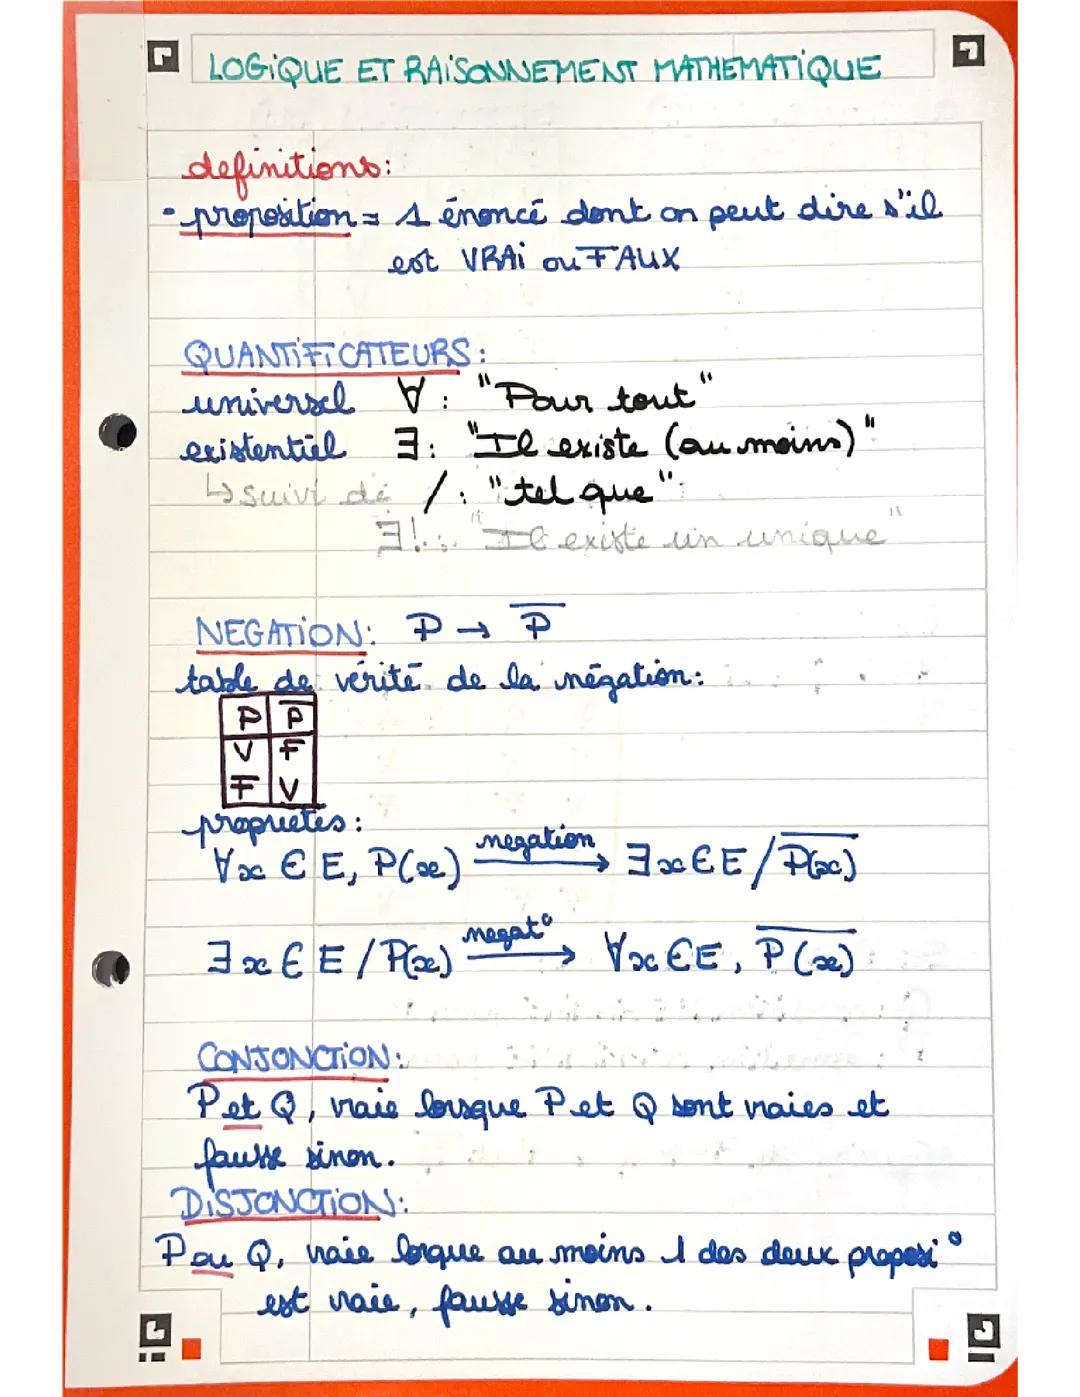 LOGIQUE ET RAISONNEMENT MATHEMATIQUE
definitions:
• proposition = 1 énoncé dont on peut dire s'il
est VRAI ou FAUX
QUANTIFICATEURS:
universel ∀ : "Pour tout"
existentiel ∃ : "Il existe (au moins)"
↳ suivi de / : "tel que"
∃! : "Il existe un unique"
NEGATION: P → P̅
table de vérité de la négation:
P P̅
V F
F V
propriétés:
∀x ∈ E, P(x) negation → ∃x ∈ E / \overline{P(x)}
∃x ∈ E / P(x) negat° → ∀x ∈ E, \overline{P(x)}
CONJONCTION:
P et Q, vraie lorsque P et Q sont vraies et
fausse sinon.
DISJONCTION:
P ou Q, vraie lorque au moins 1 des deux proposi°
est vraie, fausse sinon.